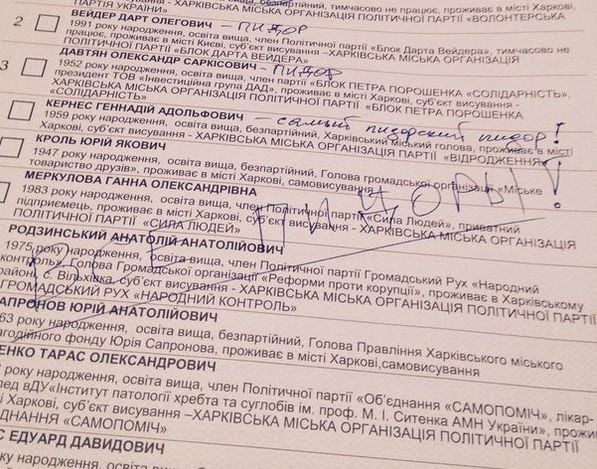 ПАРТІЯ УКРАЇНИ» - ХАРКІВСЬКА МІСЬКА ОРГАНІЗАЦІЯ ПОЛІТИЧНОЇ ПАРТІЇ «ВОЛОНТЕРСЬКА
2 ВЕЙДЕР ДАРТ ОЛЕГОВИЧ – ПИДОР
1991 року народження, освіта вища, член Політичної партії «Блок Дарта Вейдера», тимчасово не
працює, проживає в місті Києві, суб'єкт висування –ХАРКІВСЬКА МІСЬКА ОРГАНІЗАЦІЯ
ПОЛІТИЧНОЇ ПАРТІЇ «БЛОК ДАРТА ВЕЙДЕРА»
3 ДАВТЯН ОЛЕКСАНДР САРКІСОВИЧ – ПИДОР
1952 року народження, освіта вища, член партії «БЛОК ПЕТРА ПОРОШЕНКА «СОЛІДАРНІСТЬ»,
президент ТОВ «Інвестиційна група ДАД», проживає в місті Харкові, суб'єкт висування -
ХАРКІВСЬКА МІСЬКА ОРГАНІЗАЦІЯ ПОЛІТИЧНОЇ ПАРТІЇ «БЛОК ПЕТРА ПОРОШЕНКА
«СОЛІДАРНІСТЬ»
КЕРНЕС ГЕННАДІЙ АДОЛЬФОВИЧ – самый пидорский пидор!
1959 року народження, освіта вища, безпартійний, Харківський міський голова, проживає в місті
Харкові, суб'єкт висування - ХАРКІВСЬКА МІСЬКА ОРГАНІЗАЦІЯ ПОЛІТИЧНОЇ ПАРТІЇ «ВІДРОДЖЕННЯ»
КРОЛЬ ЮРІЙ ЯКОВИЧ
1947 року народження, освіта вища, безпартійний, Голова громадської організації «Міське
товариство друзів», проживає в місті Харкові, самовисування
МЕРКУЛОВА ГАННА ОЛЕКСАНДРІВНА
1983 року народження, освіта вища, член Політичної партії «Сила Людей», приватний
підприємець, проживає в місті Харкові, суб'єкт висування - ХАРКІВСЬКА МІСЬКА ОРГАНІЗАЦІЯ
ПОЛІТИЧНОЇ ПАРТІЇ «СИЛА ЛЮДЕЙ»
ВСЕ ПИДОРЫ!
РОДЗИНСЬКИЙ АНАТОЛІЙ АНАТОЛІЙОВИЧ
1975 року народження, освіта вища, член Політичної партії Громадський Рух «Народний
контроль», Голова Громадської організації «Реформи проти корупції», проживає в Харківському
районі, с. Вільхівка, суб'єкт висування - ХАРКІВСЬКА МІСЬКА ОРГАНІЗАЦІЯ ПОЛІТИЧНОЇ ПАРТІЇ
ГРОМАДСЬКИЙ РУХ «НАРОДНИЙ КОНТРОЛЬ»
САПРОНОВ ЮРІЙ АНАТОЛІЙОВИЧ
63 року народження, освіта вища, безпартійний, Голова Правління Харківського міського
благодійного фонду Юрія Сапронова, проживає в місті Харкові,самовисування
ЕНКО ТАРАС ОЛЕКСАНДРОВИЧ
року народження, освіта вища, член Політичної партії «Об'єднання «САМОПОМІЧ», лікар-
вДУ«Інститут патології хребта та суглобів ім. проф. М. І. Ситенка АМН України», прожи
Харкові, суб'єкт висування –ХАРКІВСЬКА МІСЬКА ОРГАНІЗАЦІЯ ПОЛІТИЧНОЇ ПАРТІЇ
ДНАННЯ «САМОПОМІЧ»
ЕДУАРД ДАВИДОВИЧ
народження, освіта вища, член